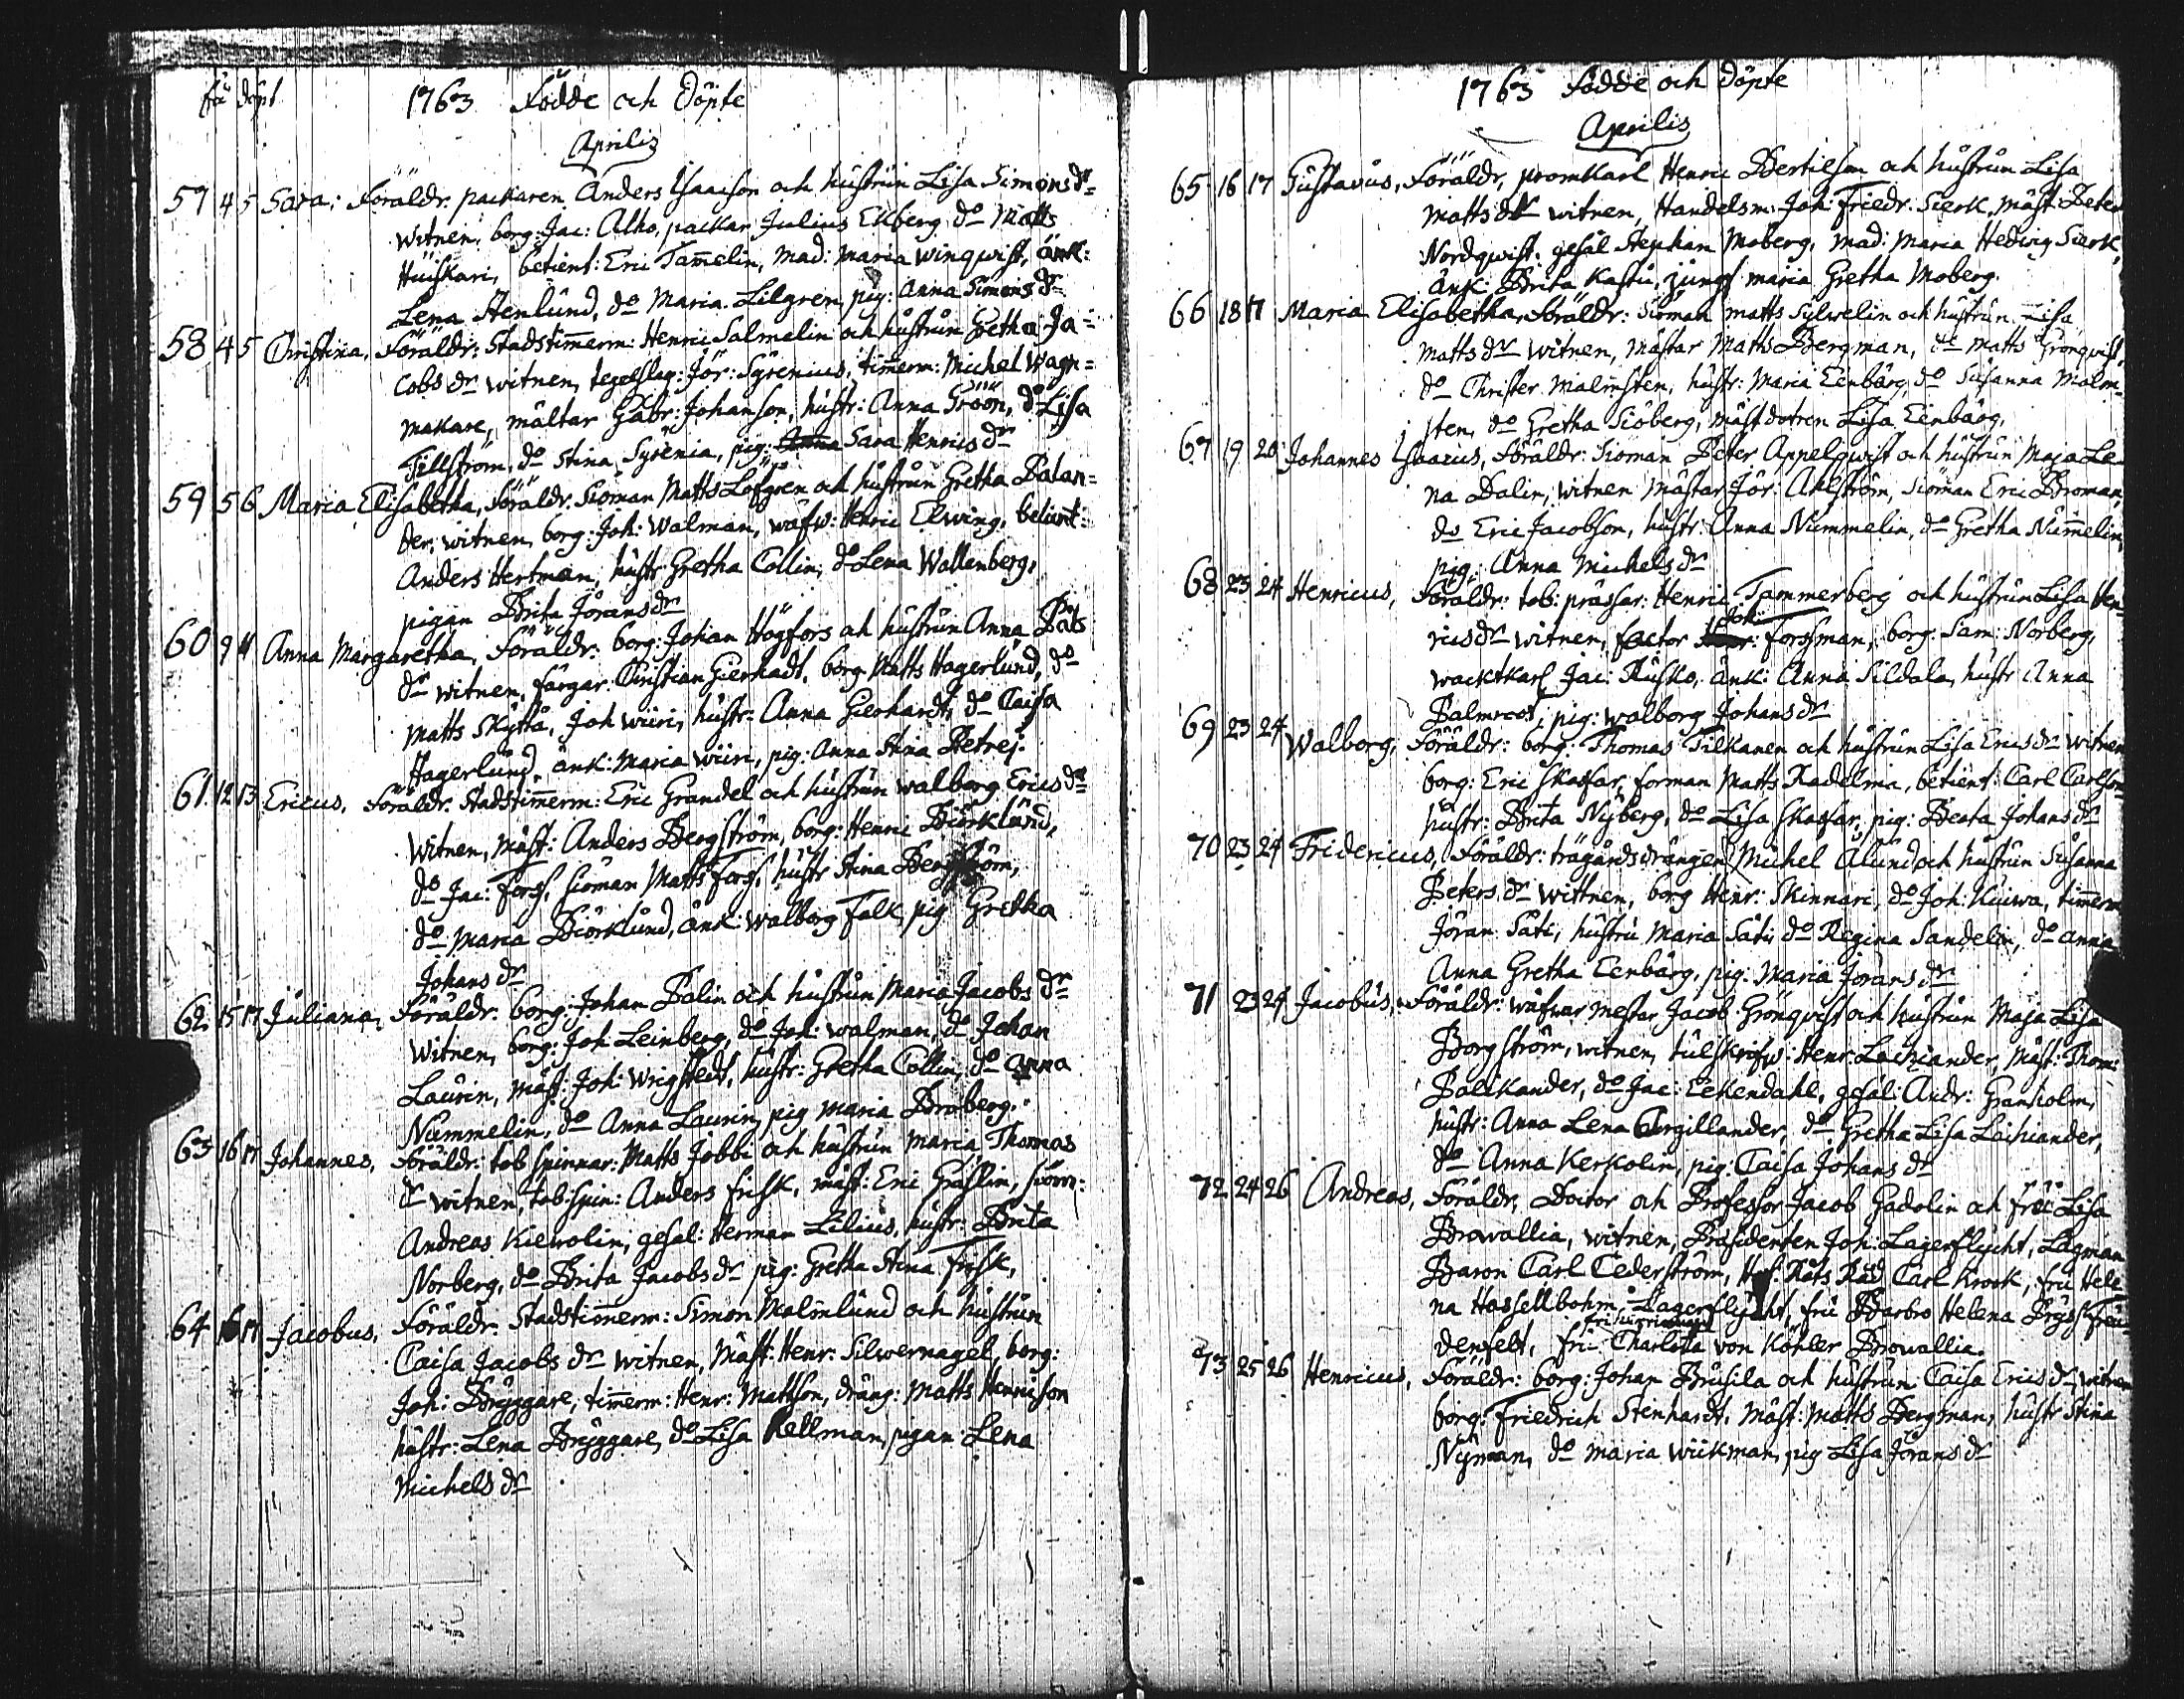 fö döpt 1763 Födde och Döpte
Aprilis
57 4 5 Sara, Föräldr. packaren Anders Isaacson och hustrun Lisa Simons dr
witnen, borg: Jac: Alho, packar Julius Ekberg, do Matts
Huiskari, betient: Eric Tam̄elin, mad: Maria Winqwist, änk:
Lena Stenlund, do Maria Lilgren, pig: Anna Simons dr
58 4 5 Christina, Föräldr: Stadstim̄erm: Henric Salmelin och hustrun Gretha Ja=
cobs dr witnen, tegelslag: Jör: Syrenius, tim̄erm: Michel Wagn=
makare, mältar Gabr: Johanson, hustr: Anna Gröön, do Lisa
Tillström, do Stina Syrenia, pig: Sara Henrics dr
59 5 6 Maria Elisabetha, Föräldr. Siöman Matts Löfgren och hustrun Gretha Balan=
der, witnen, borg: Joh: Walman, wäfw: Henric Elwing, betient:
Anders Hertman, hustr Gretha Collin, do Lena Wallenberg,
pigan Brita Jörans dr
60 9 11 Anna Margaretha, Föräldr: borg: Johan Högfors och hustrun Anna Påls
dr witnen, färgar: Christian Gierhadt, borg Matts Hagerlund, do
Matts Skyttä, Joh Wiiri, hustr: Anna Gierhardt, do Caisa
Hagerlund, änk: Maria Wiiri, pig: Anna Stina Petrej.
61 12 13 Ericus, Föräldr. Stadstim̄erm: Eric Grandel och hustrun Walborg Erics dr
witnen, mäst: Anders Bergström, borg: Henric Biörklund,
do Jac: Forss, siöman Matts Forss, hustr Stina Bergström,
do Maria Biörklund, änk: Walborg Falk, pig Gretha
Johans dr
62 15 17 Juliana, Föräldr: borg: Johan Palin och hustrun Maria Jacobs dr
witnen, borg: Joh Leinberg, do Joh: Walman, do Johan
Laurin, mäst: Joh: Wrigstedt, hustr: Gretha Collin, do Anna
Nummelin, do Anna Laurin, pig Maria Broberg.
63 16 17 Johannes, Föräldr: tob Spinnar: Matts Jobbi och hustrun Maria Thomas
dr witnen, tob: Spin: Anders Frisk, mäst: Eric Gräslin,
Andreas Kiewolin, gesäl: Herman Lilius, hustr: Brita
Norberg, do Brita Jacobs dr pig: Gretha Stina Frisk,
64 16 17 Jacobus, Föräldr. Stadstim̄erm: Simon Malmlund och hustrun
Caisa Jacobs dr witnen, Mäst: Henr: Silwernagel, borg:
Joh: Bryggare, tim̄erm: Henr: Mattson, dräng: Matts Henricson
hustr: Lena Bryggare, do Lisa Kellman, pigan Lena
Michels dr
1763 Födde och Döpte
Aprilis
65 16 17 Gustavus, Föräldr, promkarl Henric Bertilson och hustrun Lisa
Matts dr witnen, Handelsm: Joh: Friedr. Sierk, mäst: Peter
Nordqwist, gesäl Stephan Moberg, mad: Maria Hedvig Sierk,
änk: Brita Kastu, jungf Maria Gretha Moberg.
66 18 19 Maria Elisabetha, Föräldr: Siöman Matts Sylwelin och hustrun Lisa
Matts dr witnen, mästar Matts Bergman, do Matts Grönqvist,
do Christer Malmsten, hustr: Maria Eenbärg, do Susanna Malm=
sten, do Gretha Siöberg, mäst dotren Lisa Eenbärg,
67 19 20 Johannes Isaacus, Föräldr: Siöman Peter Appelqwist och hustrun Maja Le=
na Dalin, witnen mästar Jör: Ahlström, siöman Eric Broman,
do Eric Jacobson, hustr: Anna Nummelin, do Gretha Num̄elin,
pig: Anna Michels dr
68 23 24 Henricus, Föräldr: tob: prässar: Henric Tammerberg och hustrun Lisa Hen
rics dr witnen, factor Joh: Forssman, borg: Sam: Norberg,
wacktkarl Jac: Rusko, änk: Anna Sildala, hustr Anna
Palmroos, pig: Walborg Johans dr
69 23 24 Walborg, Föräldr: borg: Thomas Tilkanen och hustrun Lisa Erics dr witnen
borg: Eric Skaffar, forman Matts Kadelma, betient: Carl Carlson,
hustr: Brita Nyberg, do Lisa Skaffar, pig: Beata Johans dr
70 23 24 Fridericus, Föräldr: trägårdsdrängen Michel Alund och hustrun Susanna
Peters dr wittnen, borg Henr: Skinnari, do Joh: Kuiwa, tim̄erm
Jöran Säti, hustru Maria Säti, do Regina Sandelin, do Anna
Anna Gretha Eenbärg, pig: Maria Jörans dr
71 23 24 Jacobus, Föräldr: wäfwar mestar Jacob Grönqvist och hustrun Maja Lisa
Borgström, witnen, tulskrifw: Henr: Lachiander, Mäst: Thom:
Palikander, do Jac: Eekendahl, gesäl: Andr: Granholm,
hustr: Anna Lena Argillander, do Gretha Lisa Lachiander,
do Anna Kerkolin, pig: Caisa Johans dr
72 24 26 Andreas, Föräldr, Doctor och Professor Jacob Gadolin och fru Lisa
Browallia, witnen, Præsidenten Joh. Lagerflycht, Lagman
Baron Carl Cederström, Hof: Räts Råd Carl Krook, fru Hele
na Hassellbohm, Lagerflycht, fru Barbro Helena Pryss Freu=
denfelt, fru Charlotta von Köhler Browallia.
73 25 26 Henricus, Föräldr: borg: Johan Brusila och hustrun Caisa Erics dr witnen
borg: Friedrich Stenhardt, Mäst: Matts Bergman, hustr Stina
Nyman, do Maria Wiikman, pig Lisa Jörans dr